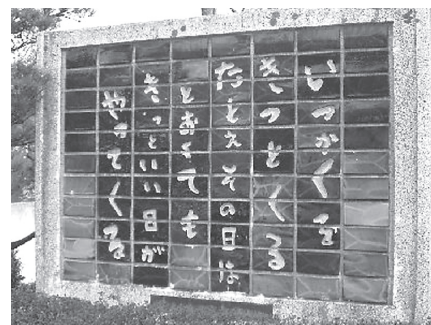 いつかくるぞ
きつとくる
たとえその日は
とおくても
きっといい日が
やってくる